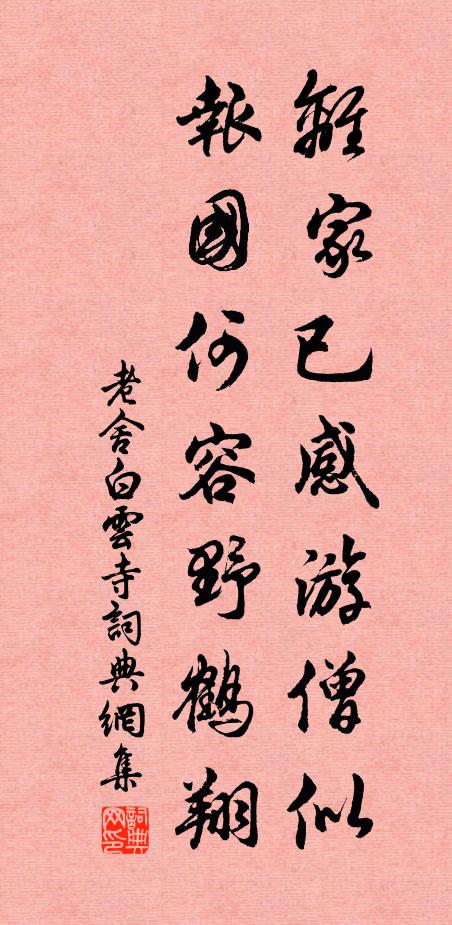 離家已感游僧似
報國何容野鶴翔
老舍白雲寺詞典網集
詞典网印